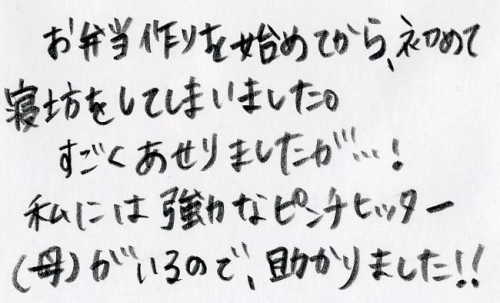 お弁当作りを始めてから、初めて
寝坊をしてしまいました。
すごくあせりましたが…!
私には強力なピンチヒッター
(母)がいるので、助かりました!!